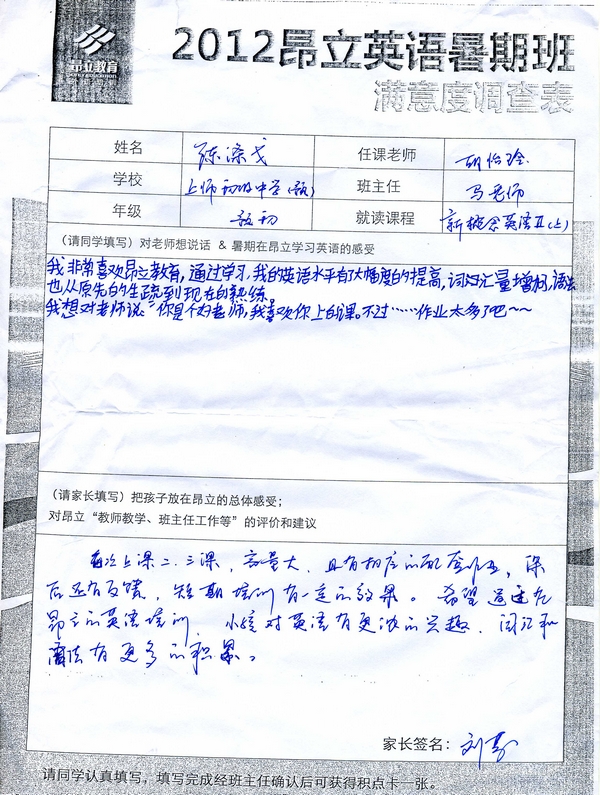 昂立教育
2012昂立英语暑期班
满意度调查表
姓名 陈 任课老师 胡怡玲
学校 上师初级中学 班主任 马老师
年级 预初 就读课程 新概念英语II(上)
(请同学填写)对老师想说话 & 暑期在昂立学习英语的感受
我非常喜欢昂立教育,通过学习,我的英语水平有了大幅度的提高,词汇量增加,语法
也从原先的生疏到现在的熟练
我想对老师说:“你是个好老师,我喜欢你上的课。不过……作业太多了吧~~
(请家长填写)把孩子放在昂立的总体感受;
对昂立“教师教学、班主任工作等”的评价和建议
每次上课二、三课,容量大,且有相应的配套作业,课
后还有反馈,短期培训有一定的效果。希望通过在
昂立的英语培训,小孩对英语有更浓的兴趣,词汇和
语法有更多的积累。
家长签名: 刘
请同学认真填写,填写完成经班主任确认后可获得积点卡一张。